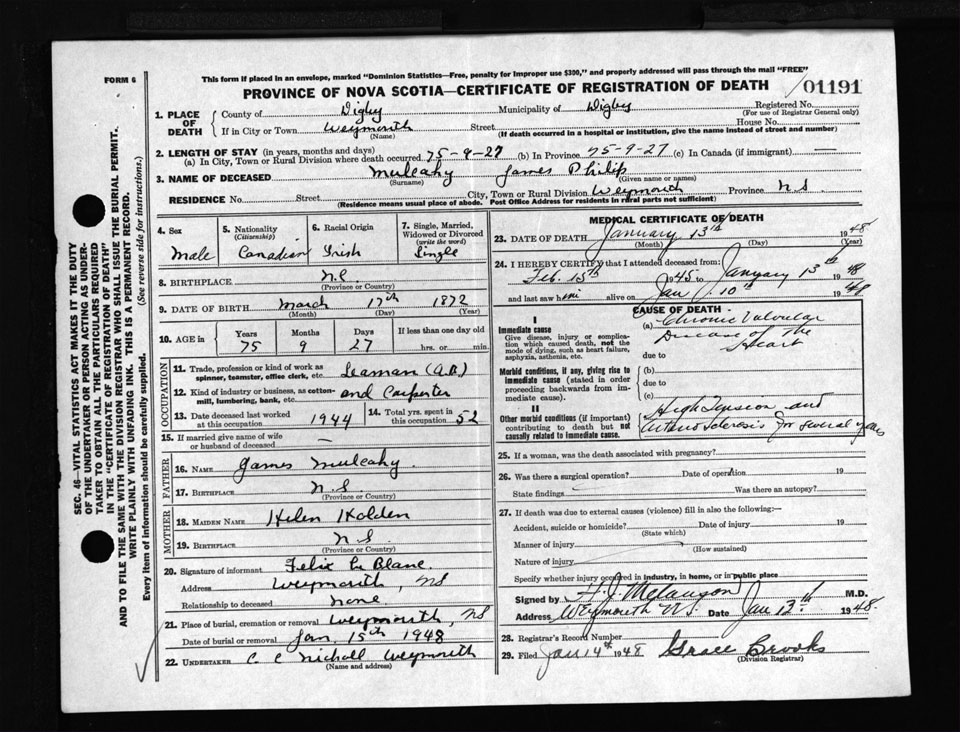 FORM 6
This form if placed in an envelope, marked "Dominion Statistics—Free, penalty for improper use $300," and properly addressed will pass through the mail "FREE"
PROVINCE OF NOVA SCOTIA—CERTIFICATE OF REGISTRATION OF DEATH
01191
1. PLACE OF DEATH
County of Digby Municipality of Digby Registered No.
(For use of Registrar General only)
If in City or Town Weymouth Street House No.
(Name) (If death occurred in a hospital or institution, give the name instead of street and number)
2. LENGTH OF STAY (in years, months and days)
(a) In City, Town or Rural Division where death occurred 75-9-27 (b) In Province 75-9-27 (c) In Canada (if immigrant) —
3. NAME OF DECEASED Mulcahy James Philip
(Surname) (Given name or names)
RESIDENCE No. Street City, Town or Rural Division Weymouth Province N.S.
(Residence means usual place of abode. Post Office Address for residents in rural parts not sufficient)
4. Sex
Male
5. Nationality
(Citizenship)
Canadian
6. Racial Origin
Irish
7. Single, Married, Widowed or Divorced
(write the word)
Single
8. BIRTHPLACE N.S.
(Province or Country)
9. DATE OF BIRTH March 17th 1872
(Month) (Day) (Year)
10. AGE in
Years Months Days If less than one day old
75 9 27 hrs. or min.
OCCUPATION
11. Trade, profession or kind of work as spinner, teamster, office clerk, etc. Seaman (A.B.)
12. Kind of industry or business, as cotton-mill, lumbering, bank, etc. and Carpenter
13. Date deceased last worked at this occupation 1944
14. Total yrs. spent in this occupation 52
15. If married give name of wife or husband of deceased —
FATHER
16. NAME James Mulcahy.
17. BIRTHPLACE N.S.
(Province or Country)
MOTHER
18. MAIDEN NAME Helen Holden
19. BIRTHPLACE N.S.
(Province or Country)
20. Signature of informant Felix Le Blanc.
Address Weymouth, NS
Relationship to deceased None
21. Place of burial, cremation or removal Weymouth, NS
Date of burial or removal Jan, 15th 1948
22. UNDERTAKER C. C Nicholl Weymouth
(Name and address)
MEDICAL CERTIFICATE OF DEATH
23. DATE OF DEATH January 13th 1948
(Month) (Day) (Year)
24. I HEREBY CERTIFY that I attended deceased from:
Feb. 15th 1945 to January 13th 1948
and last saw him alive on Jan 10th 1948
CAUSE OF DEATH
I
Immediate cause
Give disease, injury or complication which caused death, not the mode of dying, such as heart failure, asphyxia, asthenia, etc.
(a) Chronic Valvular
Disease of the
Heart
due to
Morbid conditions, if any, giving rise to immediate cause (stated in order proceeding backwards from immediate cause).
(b)
due to
(c)
II
Other morbid conditions (if important) contributing to death but not causally related to immediate cause.
High Tension and
Arterio Sclerosis for several years
25. If a woman, was the death associated with pregnancy?
26. Was there a surgical operation? Date of operation 19
State findings Was there an autopsy?
27. If death was due to external causes (violence) fill in also the following:—
Accident, suicide or homicide? Date of injury 19
(State which)
Manner of injury
(How sustained)
Nature of injury
Specify whether injury occurred in industry, in home, or in public place
Signed by H. J. Melanson M.D.
Address Weymouth N.S. Date Jan 13th 1948.
28. Registrar's Record Number
29. Filed Jan 14th 1948 Grace Brooks
(Division Registrar)
SEC. 48—VITAL STATISTICS ACT MAKES IT THE DUTY
OF THE UNDERTAKER OR PERSON ACTING AS UNDER-
TAKER TO OBTAIN ALL THE PARTICULARS REQUIRED
IN THE "CERTIFICATE OF REGISTRATION OF DEATH"
AND TO FILE THE SAME WITH THE DIVISION REGISTRAR WHO SHALL ISSUE THE BURIAL PERMIT.
WRITE PLAINLY WITH UNFADING INK. THIS IS A PERMANENT RECORD.
Every item of information should be carefully supplied. (See reverse side for instructions.)